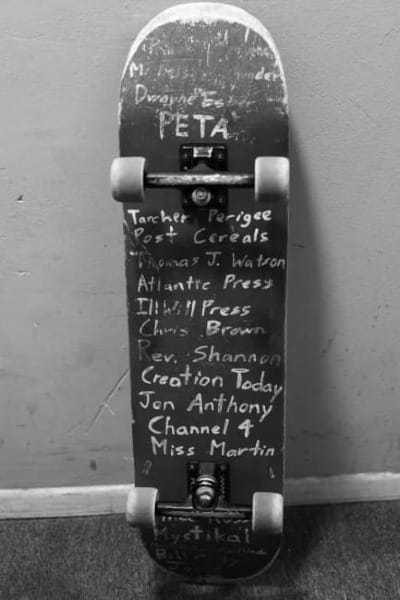 Dwayne
PETA
Tarcher Perigee
Post Cereals
Thomas J. Watson
Atlantic Press
Ill Will Press
Chris Brown
Rev. Shannon
Creation Today
Jon Anthony
Channel 4
Miss Martin
Mystikal
Bill